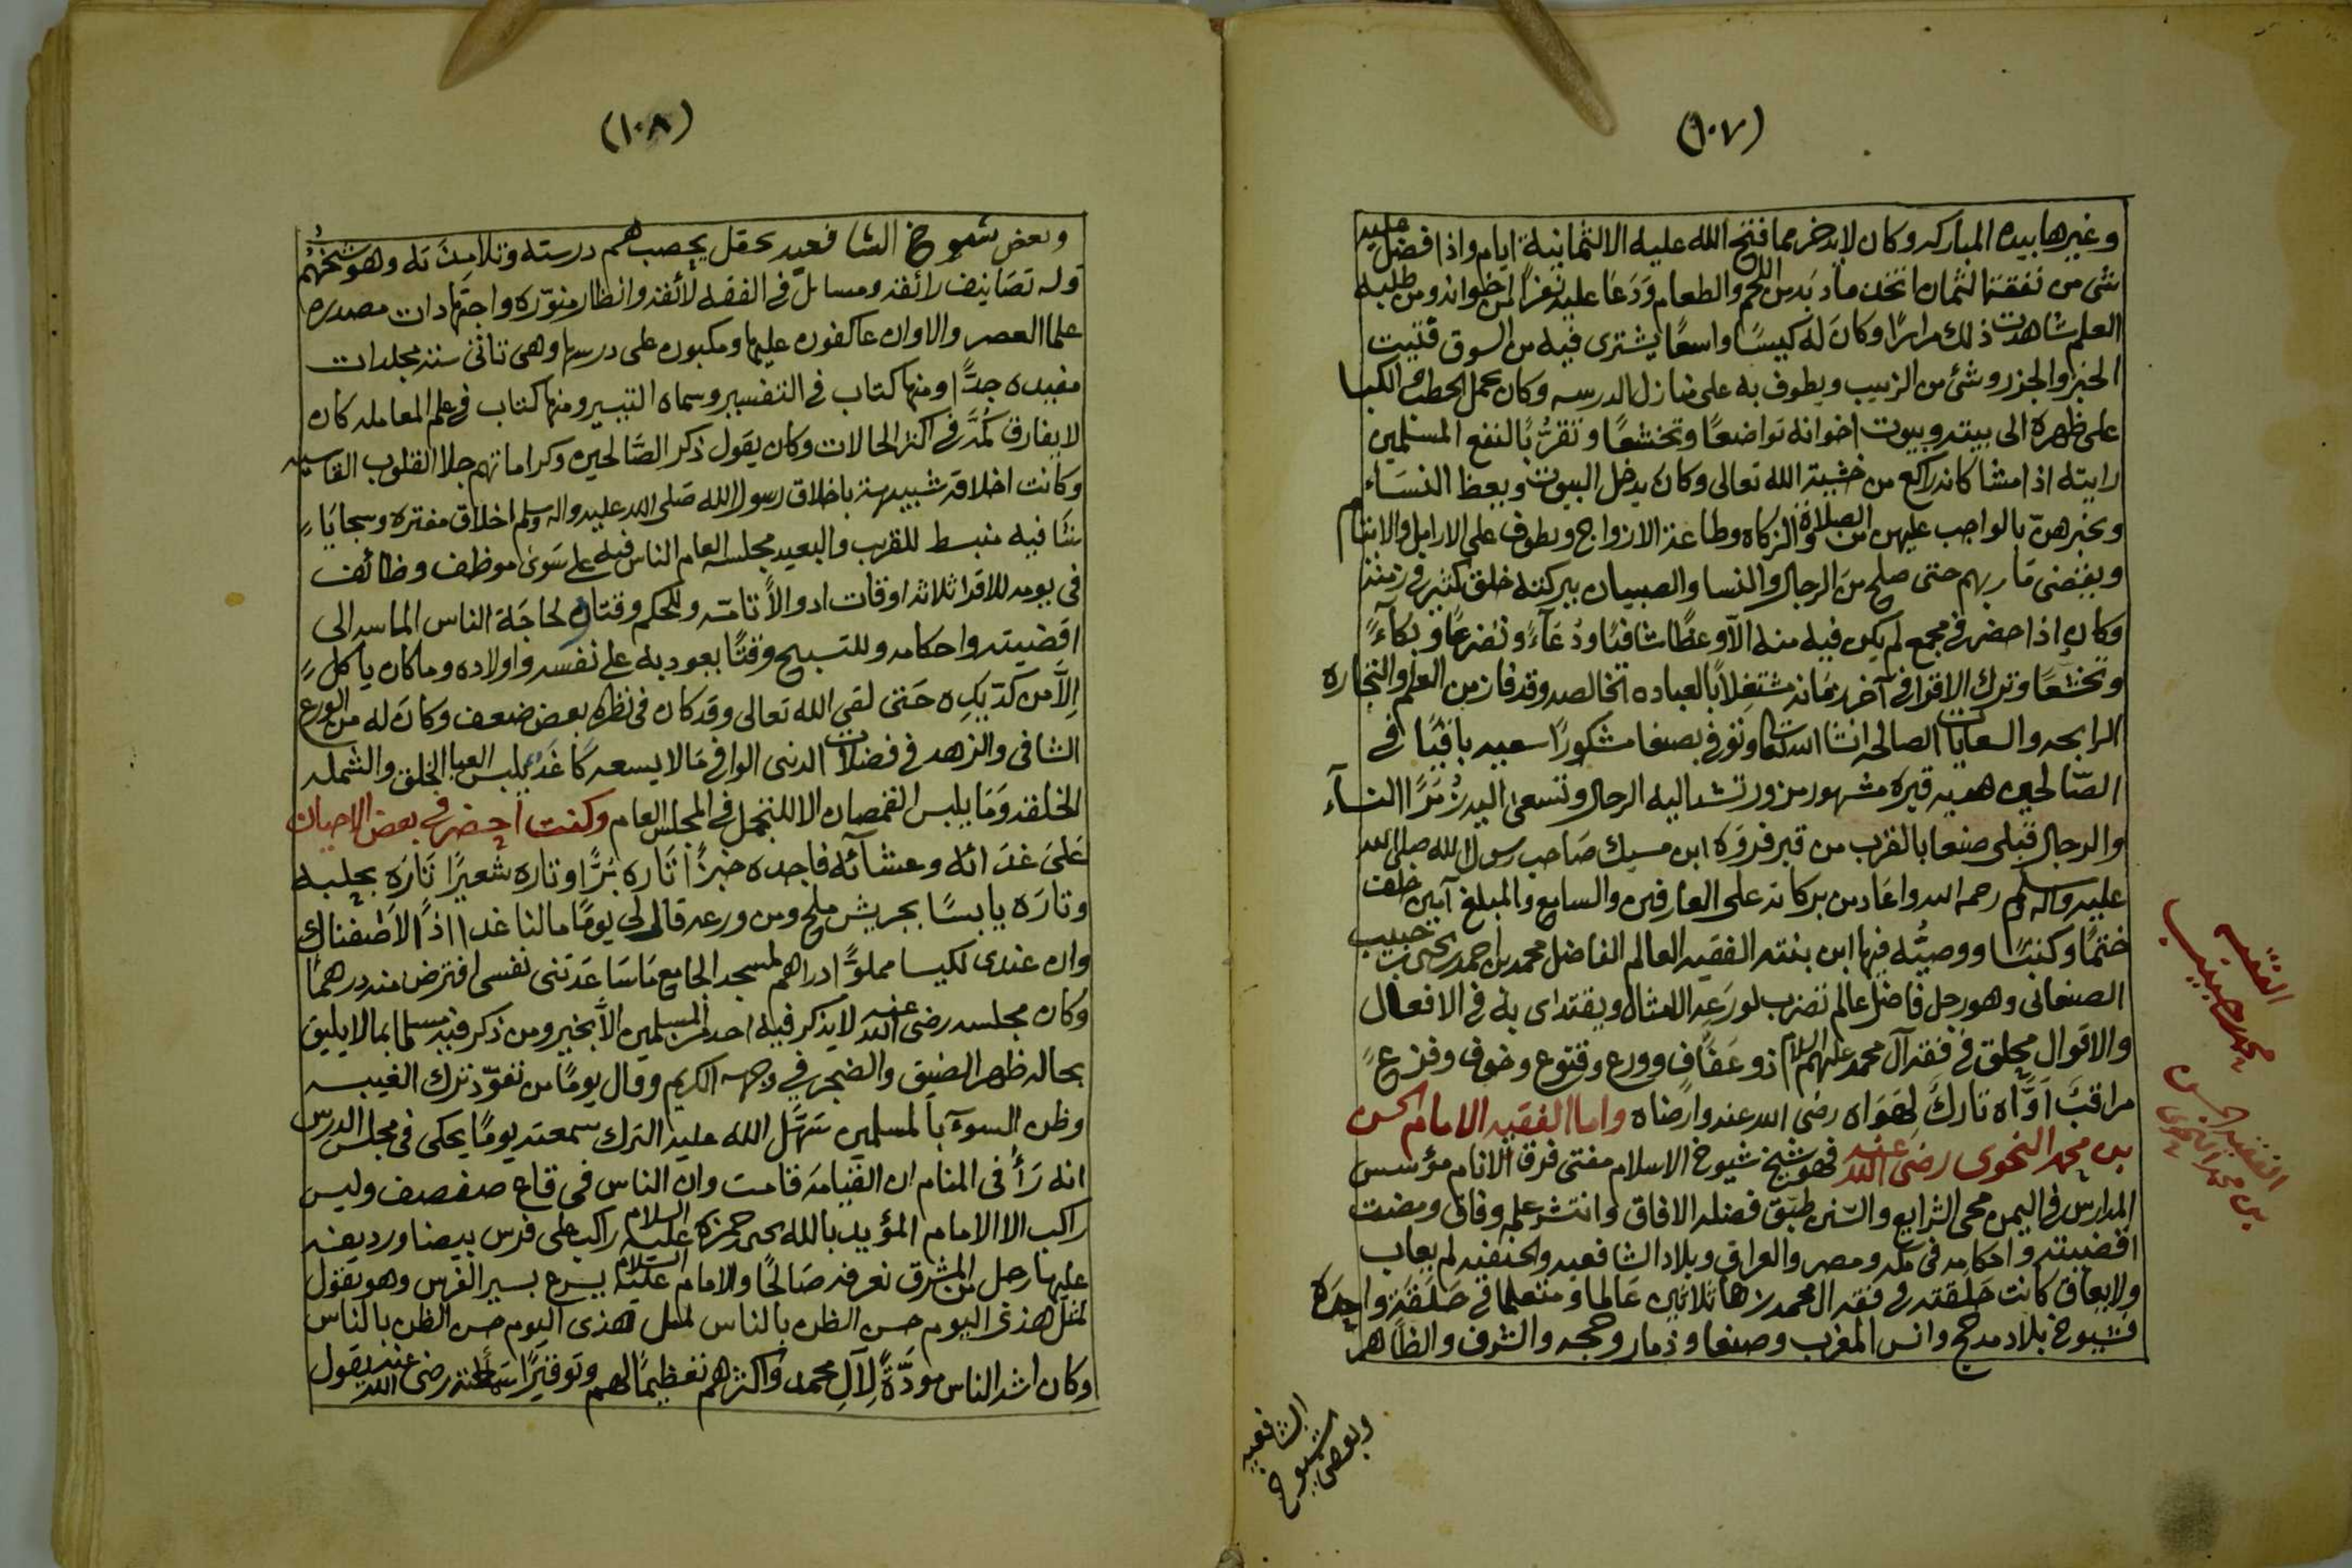 (١٠٧)
وغيرها بيده المباركه وكان لا يدخر مما فتح الله عليه الا لثمانية ايام واذا فضل عليه
شئ من نفقة الثمان اتخذ مأدبه من اللحم والطعام ودعا عليه نفرًا من اخوانه ومن طلبه
العلم شاهدت ذلك مرارًا وكان له كيسًا واسعًا يشتري فيه من السوق فتيت
الخبز والجزر وشئ من الزبيب ويطوف به على منازل المدرسه وكان يحمل الحطب الكبا
على ظهره الى بيته وبيوت اخوانه تواضعًا وتخشعًا وتقربًا لنفع المسلمين
رايته اذا مشا كانه راكع من خشية الله تعالى وكان يدخل البيوت ويعظ النساء
ويخبرهن بالواجب عليهن من الصلاة والزكاه وطاعة الازواج ويطوف على الارامل والايتام
ويقضي مآربهم حتى صلح من الرجال والنسا والصبيان ببركته خلق كثير في زمنه
وكان اذا حضر في مجمع لم يكن فيه منه الا وعظًا شافيًا ودعآءً وتضرعًا وبكآءً
وتخشعًا وترك الاقرا في آخر زمانه مشتغلًا بالعباده الخالصه وقد فاز من العلم والتجاره
الرابحه والسعايات الصالحه انشا الله تعالى وتوفي بصنعا مشكورًا سعيه باقيًا في
الصالحين هديه قبره مشهور مزور تشد اليه الرحال وتسعى اليه زمرًا النسآء
والرجال قبلي صنعا بالقرب من قبر فروة ابن مسيك صاحب رسول الله صلى الله
عليه واله وسلم رحمه الله واعاد من بركاته على العارفين والسامع والمبلغ آمين خلف
ختمًا وكتبًا ووصيُّه فيها ابن بنته الفقيه العالم الفاضل محمد بن احمد يحيى بن حبيب
الصنعاني وهو رجل فاضل عالم تضرب لورعه الامثال ويقتداى به في الافعال
والاقوال محلق في فقه آل محمد عليهم السلام ذو عفاف وورع وقنوع وخوف وفزعٍ
مراقبًا اوّاه تاركً لهواه رضى الله عنه وارضاه واما الفقيه الامام الحسن
بن محمد النحوى رضى الله عنه فهو شيخ شيوخ الاسلام مفتى فرق الانام مؤسس
المدارس في اليمن محى الشرايع والسنن طبّق فضله الافاق وانتشر علمه وفاق ومضت
اقضيته واحكامه في مكه ومصر والعراق وبلاد الشافعيه والحنفيه لم يعاب
ولا يعاق كانت حلقته في فقه ال محمد زهآ ثلاثين عالما ومتعلما في حلقة واحدة
فشيوخ بلاد مدحج وانس المغرب وصنعا وذمار وحجه والشرف والظاهر
وبعض
شيوخ
الشافعيه
الفقيه
محمد حبيب
الفقيه الحسن
بن محمد النحوى
(١٠٨)
وبعض شيوخ الشافعيه بحقل يحصب هم درسته وتلامذته وهو شيخهم
وله تصانيف رائفه ومسائل في الفقه لائقه وانظار منوّره واجتهادات مصدره
علما العصر والاوان عاكفون عليها ومكبون على درسها وهى تاتى ستة مجلدات
مفيده جدًّا ومنها كتاب في التفسير وسماه التيسير ومنها كتاب في علم المعامله كان
لا يفارق كُمَّه في اكثر الحالات وكان يقول ذكر الصَّالحين وكراماتهم جلا القلوب القاسيه
وكانت اخلاقه شبيهة باخلاق رسول الله صلى الله عليه واله وسلم اخلاق مفتره وسجايًا
شافيه منبسط للقريب والبعيد مجلسه العام الناس فيه على سوى موظف وظائف
في يومه للاقرا ثلاثه اوقات ادوالًا تامّه وللحكم وقتان لحاجة الناس الماسه الى
اقضيته واحكامه وللتسبيح وقتًا يعود به على نفسه واولاده وما كان ياكل
إلّا من كدّ يدِه حتى لقى الله تعالى وقد كان في نظره بعض ضعف وكان له من الورع
الشافى والزهد في فضلات الدنى الوافي ما لا يسعه كاغد يلبس العبا الخلق والشمله
الخلقه وما يلبس القمصان الا للتجمل في المجلس العام وكنت احضر في بعض الاحيان
على غدائه وعشآئه فاجده خبزًا تاره بُرًّا وتاره شعيرًا تاره بحلبه
وتاره يابسًا بجريش ملح ومن ورعه قال لى يومًا ما لنا غدا اذًا لاضفناك
وان عندى لكيسا مملوًّا دراهم لمسجد الجامع ما ساعدتنى نفسى افترض منه درهمًا
وكان مجلسه رضى الله عنه لا يذكر فيه احد من المسلمين الا بخير ومن ذكر فيه مسلما بما لا يليق
بحاله ظهر الضيق والضجر في وجهه الكريم وقال يومًا من تعوّد ترك الغيبه
وظن السوء بالمسلمين سهّل الله عليه الترك سمعته يومًا يحكى في مجلس الدرس
انه رأى في المنام ان القيامه قامت وان الناس في قاع صفصف وليس
راكب الا الامام المؤيد بالله يحيى حمزة عليه السلام راكب على فرس بيضا ورديفه
عليها رجل من المشرق نعرفه صالحًا والامام عليه السلام يسرع بسير الفرس وهو يقول
لمثل هذى اليوم حسن الظن بالناس لمثل هذى اليوم حسن الظن بالناس
وكان اشد الناس مودَّةً لآل محمد واكثرهم تعظيمًا لهم وتوقيرًا سمعته رضى الله عنه يقول